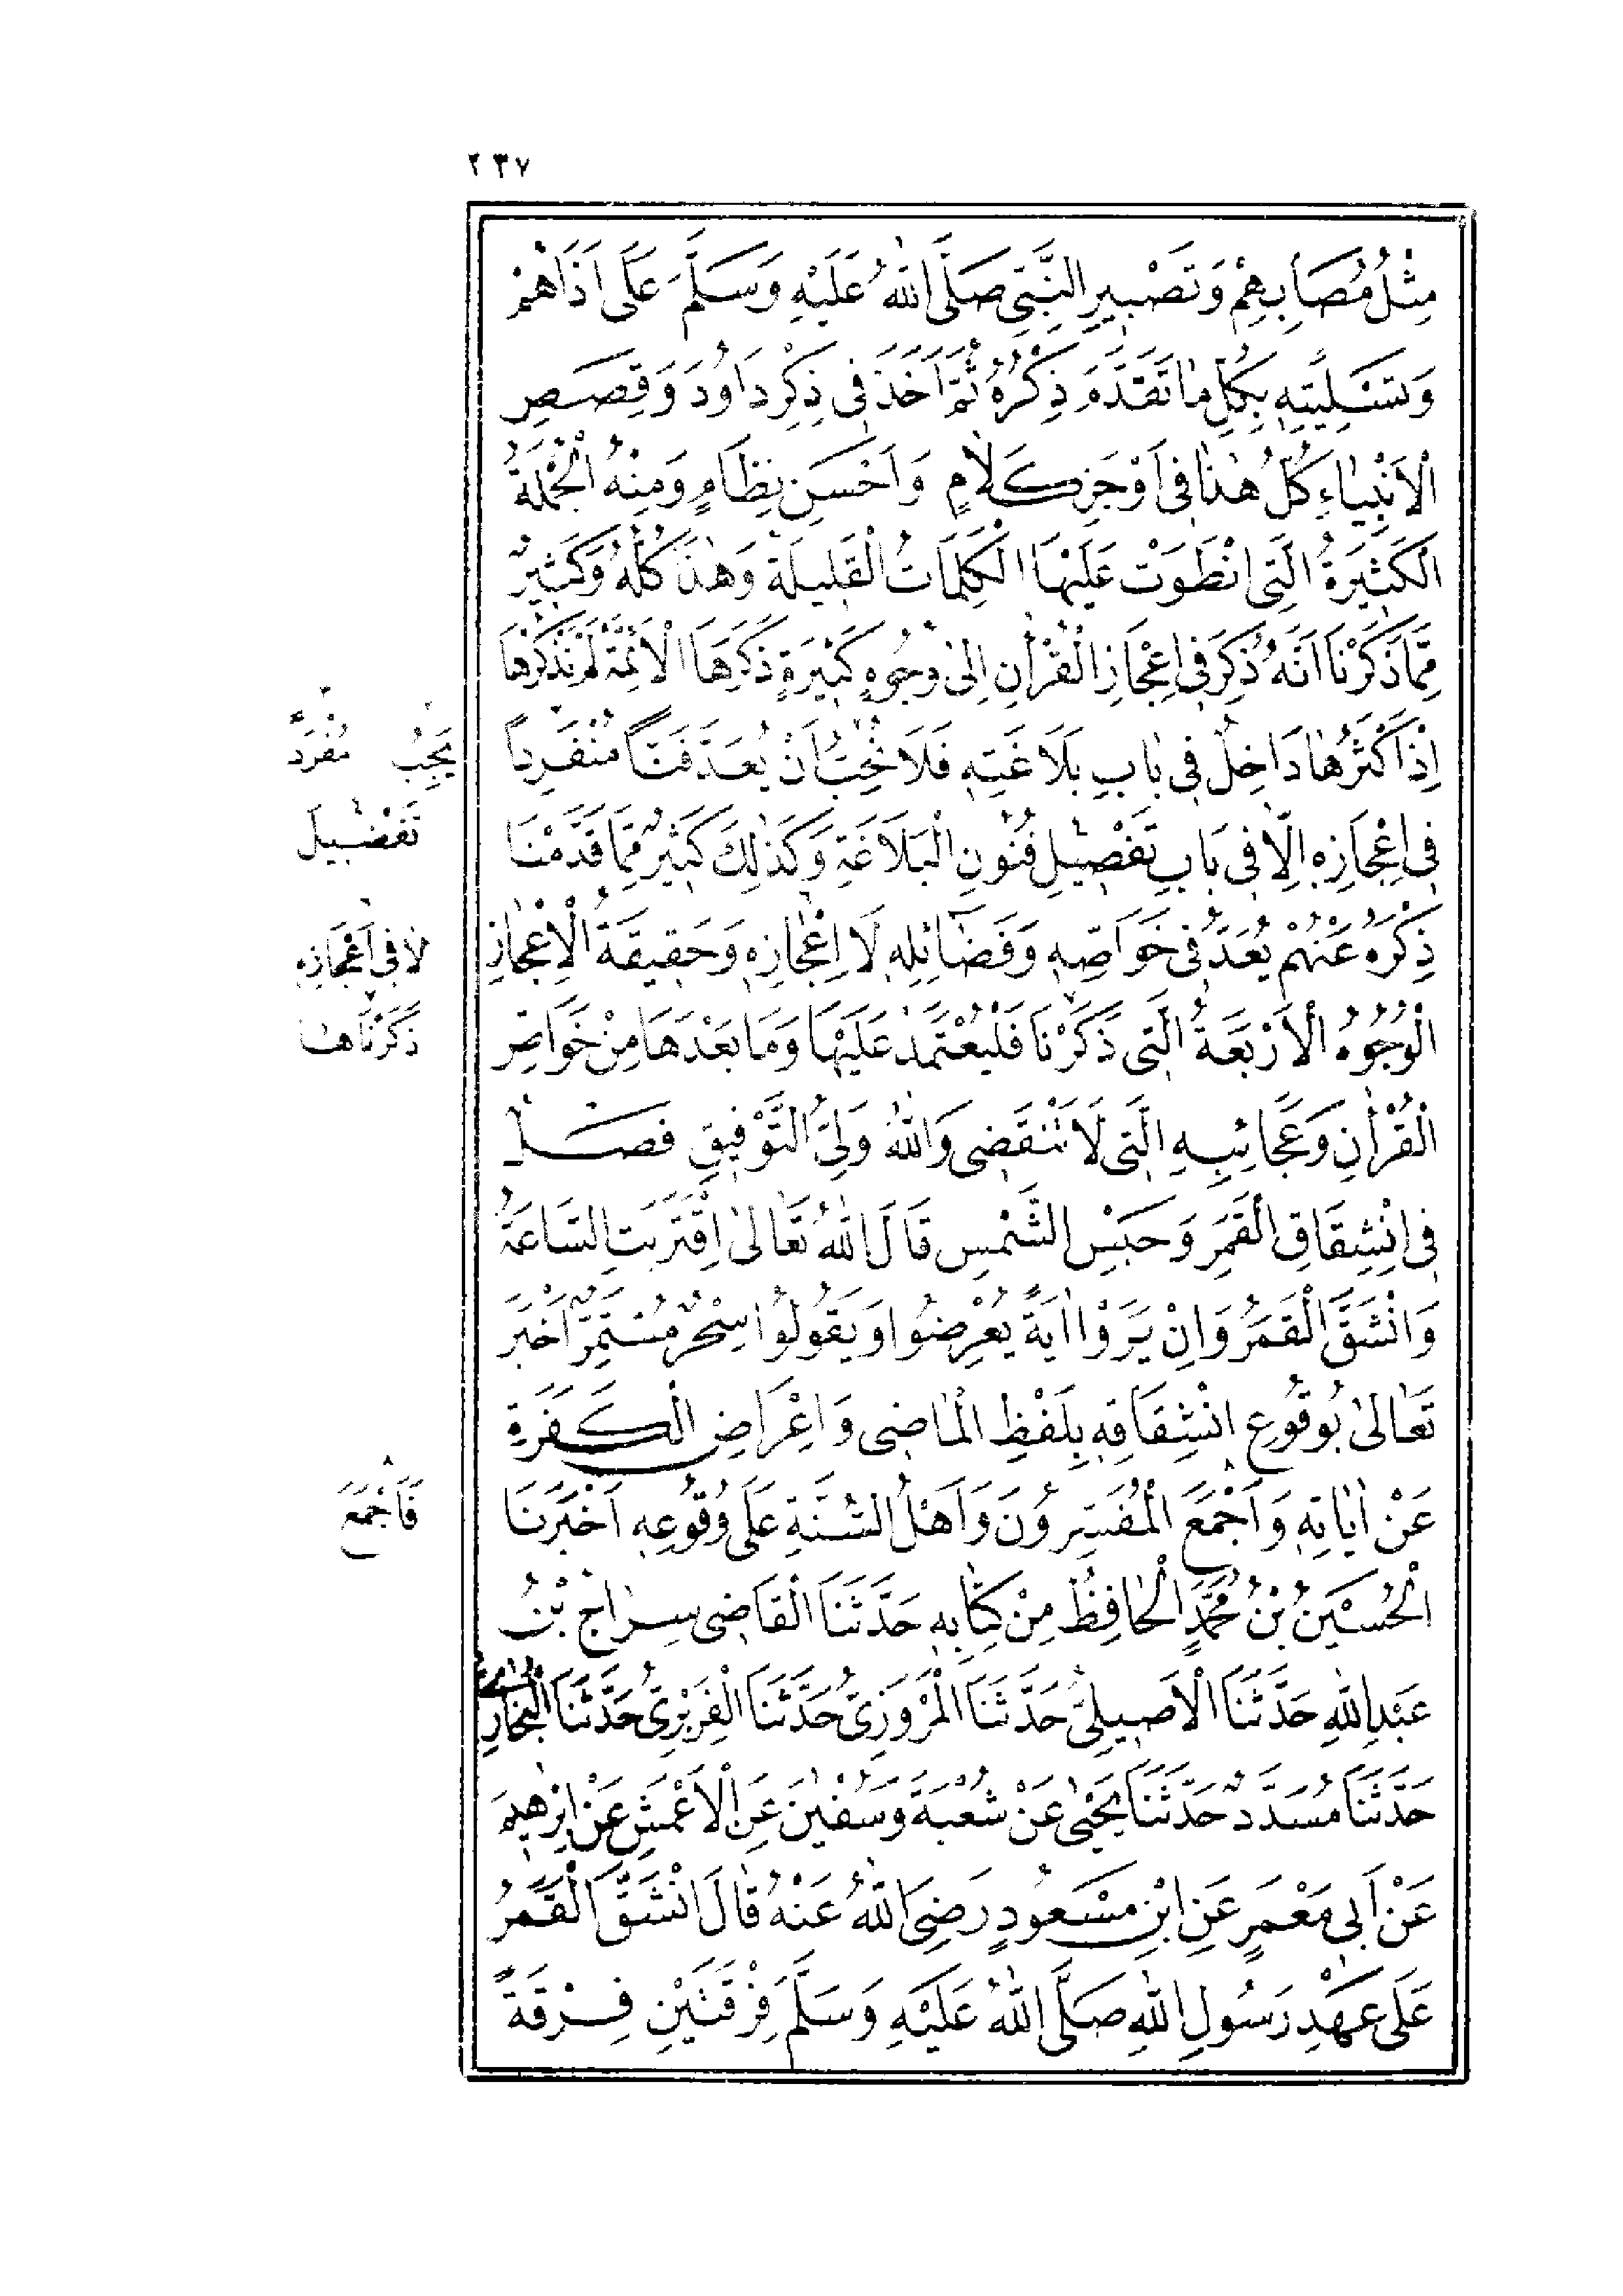 ٢٣٧
مِثْلُ مُصَابِهِمْ وَتَصْبِيرِ النَّبِيِّ صَلَّى اللهُ عَلَيْهِ وَسَلَّمَ عَلَى اَذَاهُمْ
وَتَسْلِيَتِهِ بِكُلِّ مَا تَقَدَّمَ ذِكْرُهُ ثُمَّ اَخَذَ فِى ذِكْرِ دَاوُدَ وَقِصَصِ
الْاَنْبِيَاءِ كُلُّ هٰذَا فِى اَوْجَزِ كَلَامٍ وَاَحْسَنِ نِظَامٍ وَمِنْهُ الْجُمْلَةُ
الْكَثِيرَةُ الَّتِى انْطَوَتْ عَلَيْهَا الْكَلِمَاتُ الْقَلِيلَةُ وَهٰذَا كُلُّهُ وَكَثِيرٌ
مِمَّا ذَكَرْنَا اَنَّهُ ذُكِرَ فِى اِعْجَازِ الْقُرْاٰنِ اِلٰى وُجُوهٍ كَثِيرَةٍ ذَكَرَهَا الْاَئِمَّةُ لَمْ نَذْكُرْهَا
اِذْ اَكْثَرُهَا دَاخِلٌ فِى بَابِ بَلَاغَتِهِ فَلَا نُحِبُّ اَنْ يُعَدَّ فَنًّا مُنْفَرِدًا
يَجِبُ مُفْرَدٌ
فِى اِعْجَازِهِ اِلَّا فِى بَابِ تَفْصِيلِ فُنُونِ الْبَلَاغَةِ وَكَذٰلِكَ كَثِيرٌ مِمَّا قَدَّمْنَا
تَفْضِيلَ
ذِكْرَهُ عَنْهُمْ يُعَدُّ فِى خَوَاصِّهِ وَفَضَائِلِهِ لَا اِعْجَازِهِ وَحَقِيقَةُ الْاِعْجَازِ
لَا فِى اِعْجَازِهِ
الْوُجُوهُ الْاَرْبَعَةُ الَّتِى ذَكَرْنَا فَلْيُعْتَمَدْ عَلَيْهَا وَمَا بَعْدَهَا مِنْ خَوَاصِّ
ذَكَرْنَاهَا
الْقُرْاٰنِ وَعَجَائِبِهِ الَّتِى لَا تَنْقَضِى وَاللهُ وَلِىُّ التَّوْفِيقِ فصل
فِى انْشِقَاقِ الْقَمَرِ وَحَبْسِ الشَّمْسِ قَالَ اللهُ تَعَالٰى اِقْتَرَبَتِ السَّاعَةُ
وَانْشَقَّ الْقَمَرُ وَاِنْ يَرَوْا اٰيَةً يُعْرِضُوا وَيَقُولُوا سِحْرٌ مُسْتَمِرٌّ اَخْبَرَ
تَعَالٰى بِوُقُوعِ انْشِقَاقِهِ بِلَفْظِ الْمَاضِى وَاِعْرَاضِ الْكَفَرَةِ
عَنْ اٰيَاتِهِ وَاَجْمَعَ الْمُفَسِّرُونَ وَاَهْلُ السُّنَّةِ عَلَى وُقُوعِهِ اَخْبَرَنَا
فَاَجْمَعَ
الْحُسَيْنُ بْنُ مُحَمَّدٍ الْحَافِظُ مِنْ كِتَابِهِ حَدَّثَنَا الْقَاضِى سِرَاجُ بْنُ
عَبْدِاللهِ حَدَّثَنَا الْاَصِيلِىُّ حَدَّثَنَا الْمَرْوَزِىُّ حَدَّثَنَا الْفِرَبْرِىُّ حَدَّثَنَا الْبُخَارِىُّ
حَدَّثَنَا مُسَدَّدٌ حَدَّثَنَا يَحْيٰى عَنْ شُعْبَةَ وَسُفْيٰنَ عَنِ الْاَعْمَشِ عَنْ اِبْرٰهِيمَ
عَنْ اَبِى مَعْمَرٍ عَنِ ابْنِ مَسْعُودٍ رَضِىَ اللهُ عَنْهُ قَالَ انْشَقَّ الْقَمَرُ
عَلَى عَهْدِ رَسُولِ اللهِ صَلَّى اللهُ عَلَيْهِ وَسَلَّمَ فِرْقَتَيْنِ فِرْقَةً